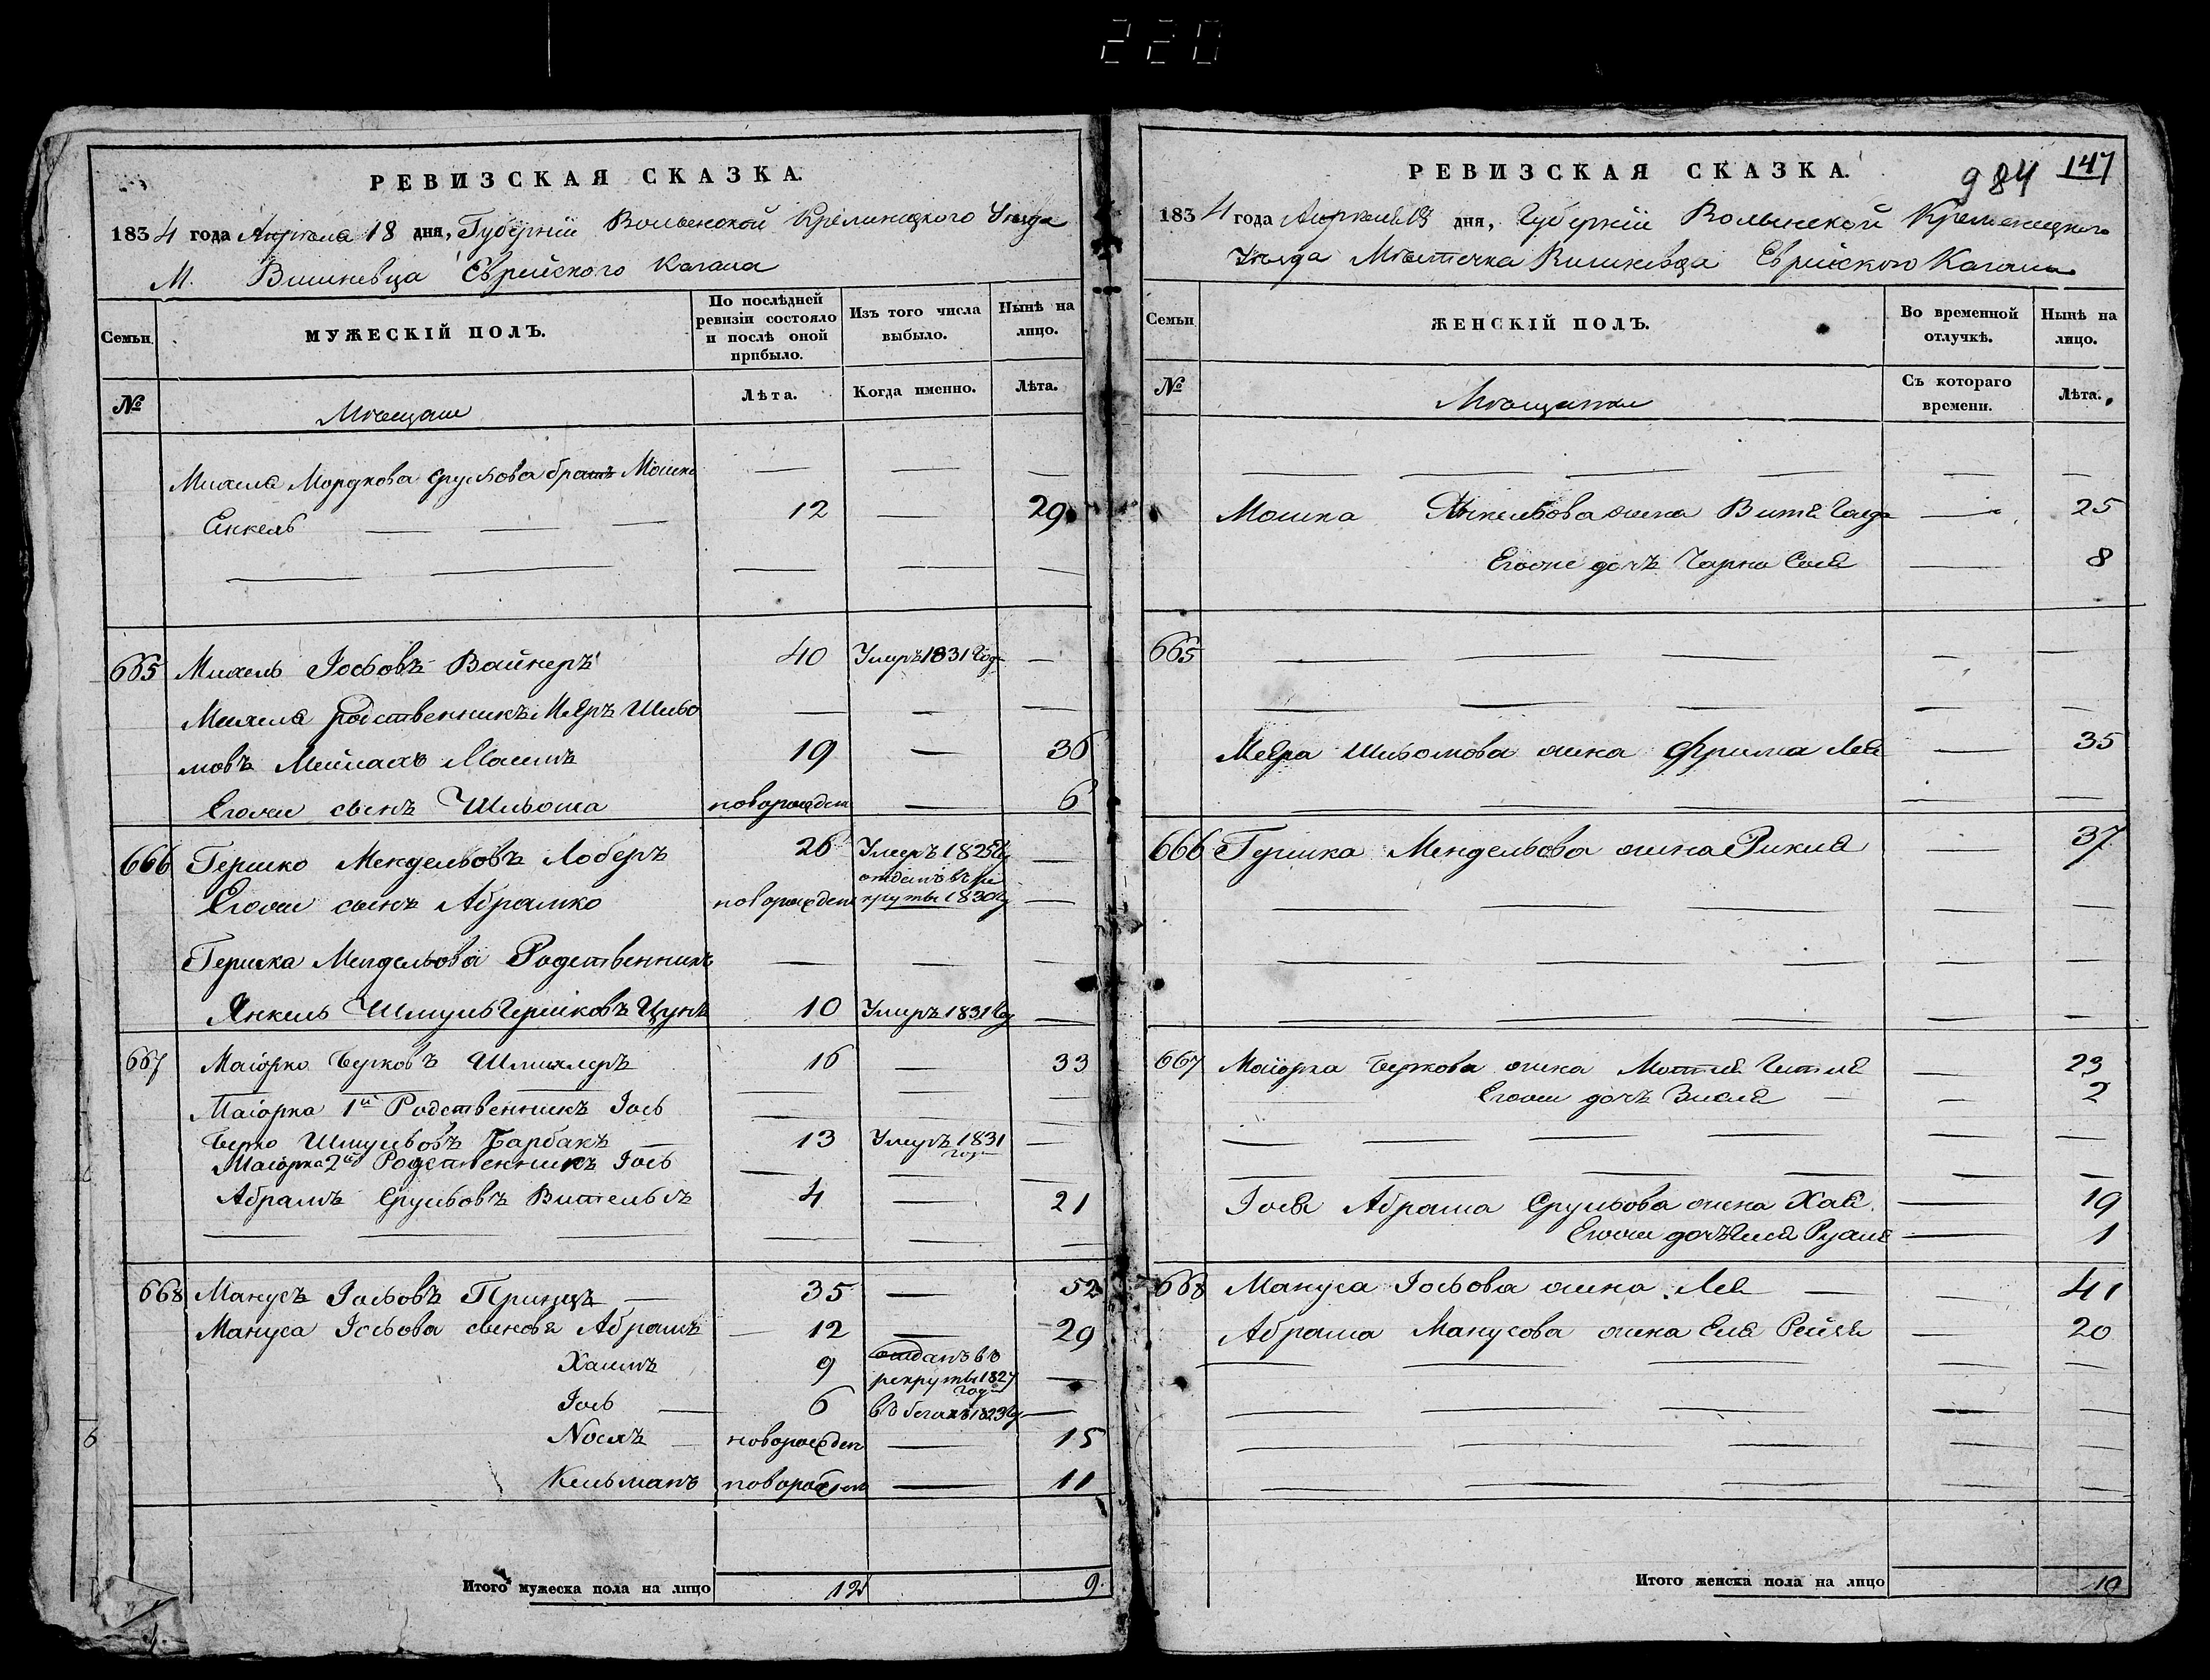 220
РЕВИЗСКАЯ СКАЗКА.
1834 года Апреля 18 дня, Губернiи Волынской Кременецкого Уезда
М. Вишневца Еврейского Кагала
Семьи
МУЖЕСКIЙ ПОЛЪ.
По послѣдней ревизiи состояло и послѣ оной прибыло.
Изъ того числа выбыло.
Нынѣ на лицо.
№
Мѣщане
Лѣта.
Когда именно.
Лѣта.
Михеля Мордкова Срульова братъ Мошко
Енкель — 12 — 29
665 Михель Iосьовъ Вайнеръ 40 Умеръ 1831 Год —
Михеля родственникъ Мееръ Шльо — — —
мовъ 19 — 36
Егоже сынъ Шльома новорожден — 6
666 Гершко Мендельовъ Лоберъ 26 Умеръ 1825 год —
Егоже сынъ Абрамко новорожден отданъ въ рекруты 1830 год —
Гершка Мендельова Родственникъ — — —
Янкель Шмуль Гершковъ Цунъ 10 Умеръ 1831 год —
667 Маiорко Берковъ Шмиклеръ 16 — 33
Маiорка 1й Родственникъ Iось — — —
Берко Шмульовъ Барбакъ — 13 Умеръ 1831 год —
Маiорка 2й Родственникъ Iось — — —
Абрамъ Срульовъ 4 — 21
668 Манусъ Iосьовъ Принцъ — 35 — 52
Мануса Iосьова сыновья Абрамъ 12 — 29
Хаимъ 9 отданъ въ рекруты 1827 год —
Iось — 6 въ бегахъ 1823 год —
Новорожден — 15
Кельманъ новорожден — 11
Итого мужеска пола на лицо 12 9
984 147
РЕВИЗСКАЯ СКАЗКА.
1834 года Апреля 18 дня, Губернiи Волынской Кременецкого
Уезда Местечка Вишневца Еврейского Кагала
Семьи
ЖЕНСКIЙ ПОЛЪ.
Во временной отлучкѣ.
Нынѣ на лицо.
№
Мѣщанки
Съ котораго времени.
Лѣта.
Мошка Янкельова жена — 25
Егоже дочь Чарна Сося — 8
665 — — —
Меера Шльомова жена Фрима Лея — 35
666 Гершка Мендельова жена Рикля — 37
667 Маiорка Беркова жена Мотля Гитля — 23
Егоже дочь Зисля — 2
Iося Абрама Срульова жена Хая — 19
Егоже дочь — 1
668 Мануса Iосьова жена Лея — 41
Абрама Манусова жена Еля Рейзя — 20
Итого женска пола на лицо 10